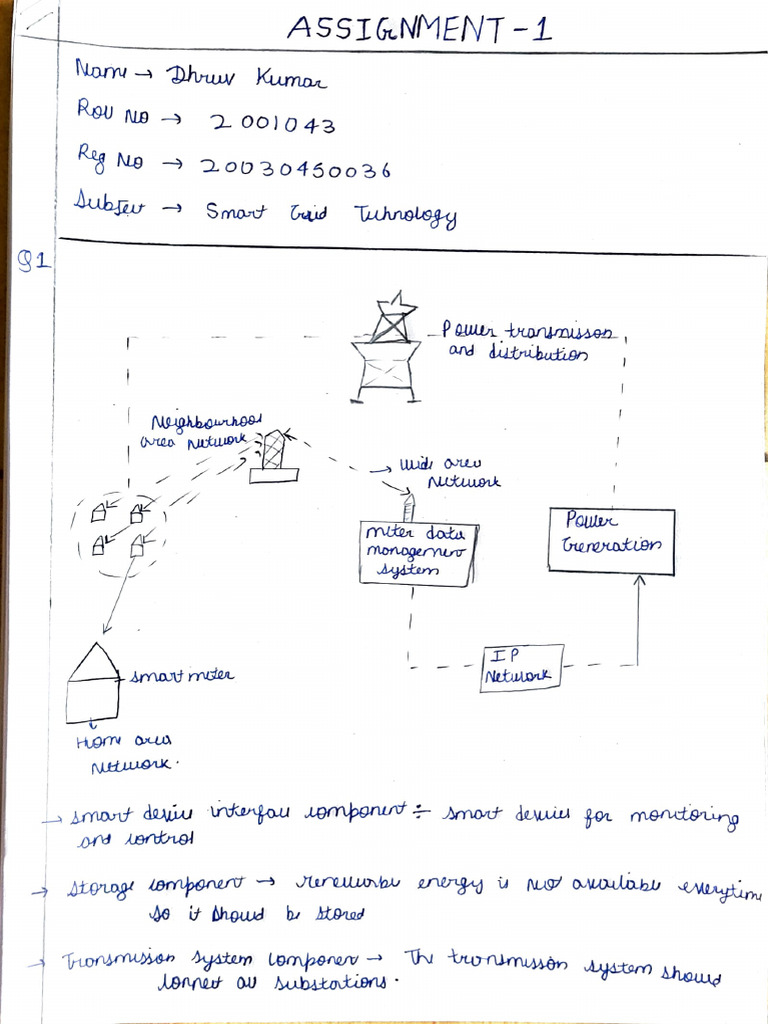 ASSIGNMENT-1
Name → Dhruv Kumar
Roll No → 2001043
Reg No → 20030450036
Subject → Smart Grid Technology
Q1
Power transmisson
and distribution
Neighbourhood
area Network
→ wide area
Network
meter data
management
system
Power
Generation
IP
Network
smart meter
Home area
Network.
→ smart device interface component ÷ smart devices for monitoring
and control
→ Storage component → renewable energy is not available everytime
so it should be stored
→ Transmission system component → The transmisson system should
connect all substations.